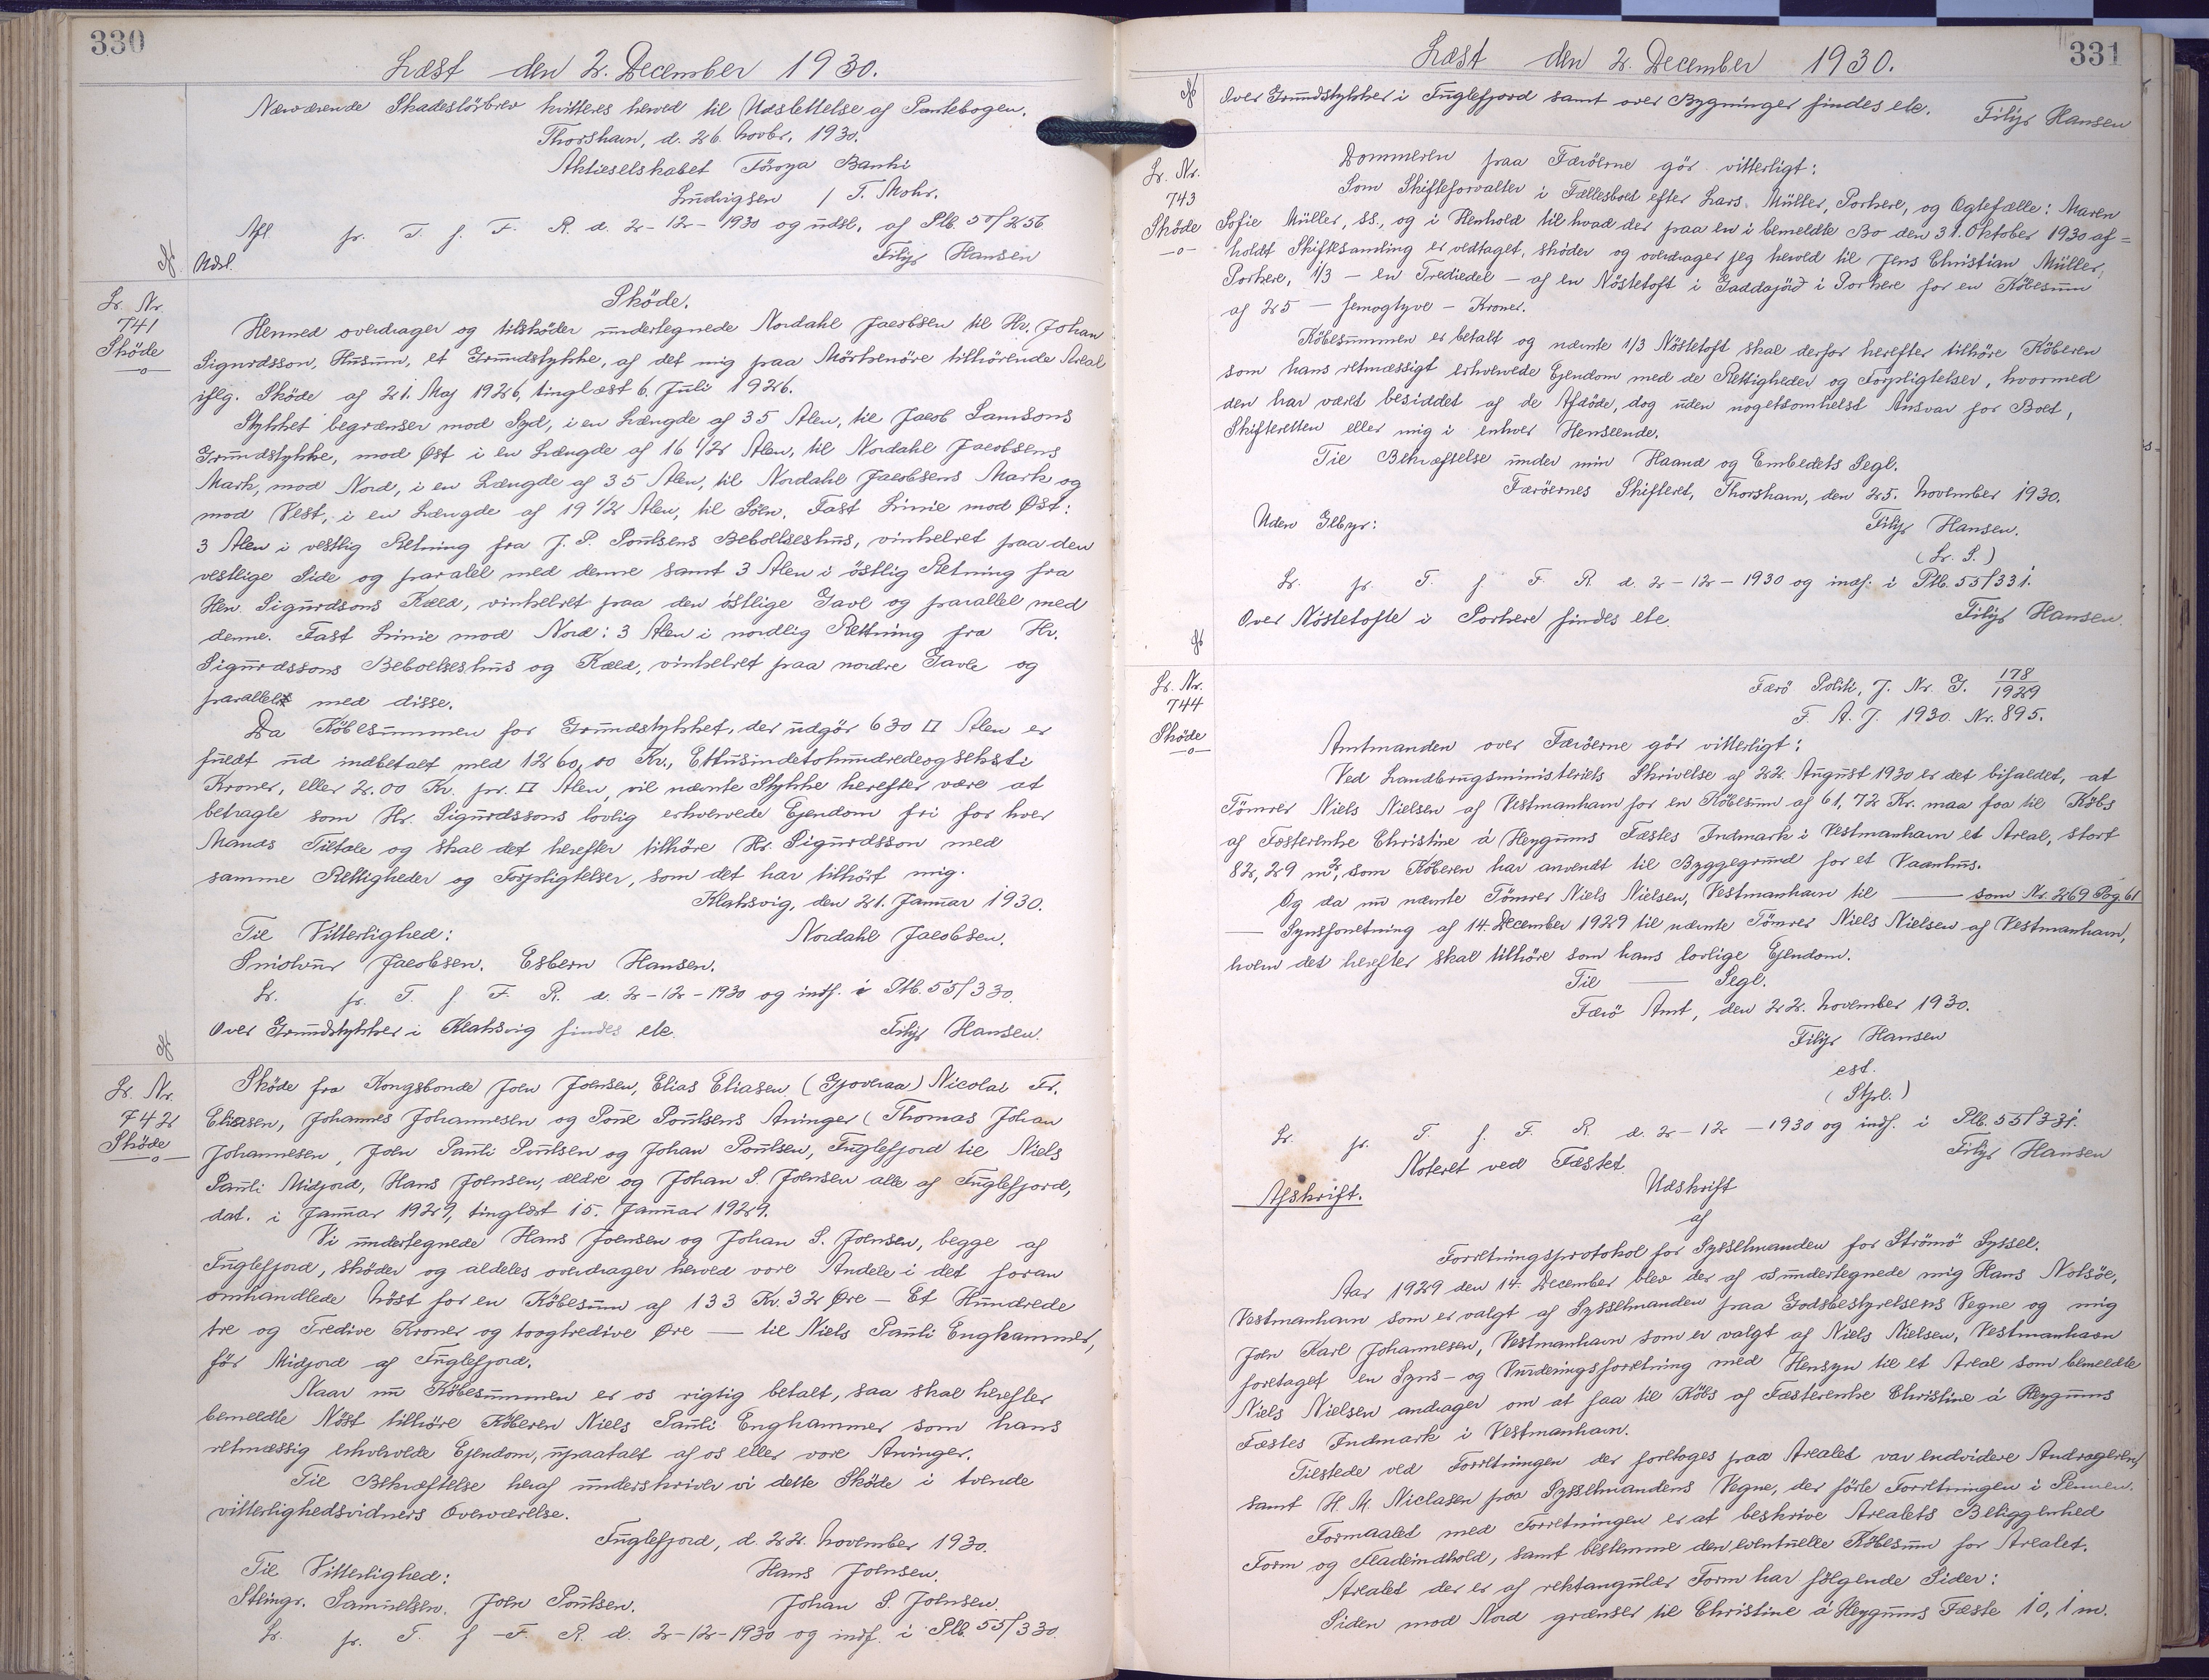 330
Læst den 2. December 1930.
Nærværende Skadesløsbrev kvitteres herved til Udslettelse af Pantebogen.
Thorshavn, d. 26. Novbr. 1930.
Aktieselskabet Føroya Banki
Ludvigsen / T. Mohr.
Afl. pr. T. f. F. R. d. 2-12-1930 og udsl. af Ptb. 50/256
Udsl. Filip Hansen
Lr. Nr.
741
Sköde
Sköde.
Hermed overdrager og tilsköder undertegnede Nordahl Jacobsen til Hr. Johan
Sigurdsson, Húsum, et Grundstykke, af det mig paa Mörkenöre tilhörende Areal
iflg. Sköde af 21. Maj 1926, tinglæst 6. Juli 1926.
Stykket begrænses mod Syd, i en Længde af 35 Alen, til Jacob Samsons
Grundstykke, mod Øst i en Længde af 16 1/2 Alen, til Nordahl Jacobsens
Mark, mod Nord, i en Længde af 35 Alen, til Nordahl Jacobsens Mark og
mod Vest, i en Længde af 19 1/2 Alen, til Söen. Fast Linie mod Øst:
3 Alen i vestlig Retning fra J. P. Poulsens Beboelseshus, vinkelret paa den
vestlige Side og paralel med denne samt 3 Alen i östlig Retning fra
Hr. Sigurdsons Kæld, vinkelret paa den östlige Gavl og parallel med
denne. Fast Linie mod Nord: 3 Alen i nordlig Rettning fra Hr.
Sigurdssons Beboelseshus og Kæld, vinkelret paa nordre Gavle og
parallel med disse.
Da Köbesummen for Grundstykket, der udgör 630 □ Alen er
fuldt ud indbetalt med 1260,00 Kr., Ettusindetohundredeogseksti
Kroner, eller 2.00 Kr. pr. □ Alen, vil nævnte Stykke herefter være at
betragte som Hr. Sigurdssons lovlig erhvervede Ejendom fri for hver
Mands Tiltale og skal det herefter tilhöre Hr. Sigurdsson med
samme Rettigheder og Forpligtelser, som det har tilhört mig.
Klaksvig, den 21. Januar 1930.
Til Vitterlighed: Nordahl Jacobsen.
Jacobsen. Esbern Hansen.
Lr. pr. T. f. F. R. d. 2-12-1930 og indf. i Ptb. 55/330.
Over Grundstykker i Klaksvig findes etc. Filip Hansen.
Lr. Nr.
742
Sköde
Sköde fra Kongsbonde Joen Joensen, Elias Eliasen (Gjoveraa) Nicolai Fr.
Eliasen, Johannes Johannesen og Poul Poulsens Arvinger (Thomas Johan
Johannesen, Joen Pauli Poulsen og Johan Poulsen, Fuglefjord til Niels
Pauli Midjord, Hans Joensen, ældre og Johan S. Joensen alle af Fuglefjord,
dat. i Januar 1929, tinglæst 15. Januar 1929.
Vi undertegnede Hans Joensen og Johan S. Joensen, begge af
Fuglefjord, sköder og aldeles overdrager herved vore Andele i det foran
omhandlede Nöst for en Köbesum af 133 Kr. 32 Øre — Et Hundrede
tre og Tredive Kroner og toogtredive Øre — til Niels Pauli Enghammer,
för Midjord af Fuglefjord.
Naar nu Köbesummen er os rigtig betalt, saa skal herefter
bemeldte Nöst tilhöre Köberen Niels Pauli Enghammer som hans
retmæssig erhvervede Ejendom, upaatalt af os eller vore Arvinger.
Til Bekræftelse heraf underskriver vi dette Sköde i tvende
vitterlighedsvidners Overværelse.
Fuglefjord, d. 22. November 1930.
Til Vitterlighed: Hans Joensen.
Steingr. Samuelsen. Joen Poulsen. Johan S. Joensen.
Lr. pr. T. f. F. R. d. 2-12-1930 og indf. i Ptb. 55/330.
331
Læst den 2. December 1930.
Over Grundstykker i Fuglefjord samt over Bygninger findes etc. Filip Hansen
Lr. Nr.
743
Sköde
Dommeren paa Færöerne gör vitterligt:
Som Skifteforvalter i Fællesboet efter Lars Müller, Porkere, og Ægtefælle: Maren
Sofie Müller, ss., og i Henhold til hvad der paa en i bemeldte Bo den 31. Oktober 1930 af-
holdt Skiftesamling er vedtaget, sköder og overdrager jeg herved til Jens Christian Müller,
Porkere, 1/3 — en Trediedel — af en Nöstetoft i Gaddajörd i Porkere for en Köbesum
af 25 — femogtyve — Kroner.
Köbesummen er betalt og nævnte 1/3 Nöstetoft skal derfor herefter tilhöre Köberen
som hans retmæssigt erhvervede Ejendom med de Rettigheder og Forpligtelser, hvormed
den har været besiddet af de Afdöde, dog uden nogetsomhelst Ansvar for Boet,
Skifteretten eller mig i enhver Henseende.
Til Bekræftelse under min Haand og Embedets Segl.
Færöernes Skifteret, Thorshavn, den 25. November 1930.
Uden Gebyr: Filip Hansen.
(L. S.)
Lr. pr. T. f. F. R. d. 2-12-1930 og indf. i Ptb. 55/331.
Over Nöstetofte i Porkere findes etc. Filip Hansen.
Lr. Nr.
744
Sköde
Færö Politi, J. Nr. G. 178/1929
F. A. J. 1930. Nr. 895.
Amtmanden over Færöerne gör vitterligt:
Ved Landbrugsministeriets Skrivelse af 22. August 1930 er det bifaldet, at
Tömrer Niels Nielsen af Vestmanhavn for en Köbesum af 61,72 Kr. maa faa til Köbs
af Fæsterenke Christine á Heygums Fæstes Indmark i Vestmanhavn et Areal, stort
82,29 m², som Köberen har anvendt til Byggegrund for et Vaanhus.
Og da nu nævnte Tömrer Niels Nielsen, Vestmanhavn til — som Nr. 269 Pag. 61
— Synsforretning af 14. December 1929 til nævnte Tömrer Niels Nielsen af Vestmanhavn,
hvem det herefter skal tilhöre som hans lovlige Ejendom.
Til — Segl.
Færö Amt, den 22. November 1930.
Filip Hansen
cst.
(Stpl.)
Lr. pr. T. f. F. R. d. 2-12-1930 og indf. i Ptb. 55/331.
Noteret ved Fæstet. Filip Hansen
Afskrift.
Udskrift
af
Forretningsprotokol for Sysselmanden for Strömö Syssel.
Aar 1929 den 14. December blev der af os undertegnede mig Hans Nolsöe,
Vestmanhavn som er valgt af Sysselmanden paa Godsbestyrelsens Vegne og mig
Joen Karl Johannesen, Vestmanhavn som er valgt af Niels Nielsen, Vestmanhavn
foretaget en Syns- og Vurderingsforretning med Hensyn til et Areal som bemeldte
Niels Nielsen andrager om at faa til Köbs af Fæsterenke Christine á Heygums
Fæstes Indmark i Vestmanhavn.
Tilstede ved Forretningen der foretoges paa Arealet var endvidere Andrageren,
samt H. M. Niclasen paa Sysselmandens Vegne, der förte Forretningen i Pennen.
Formaalet med Forretningen er at beskrive Arealets Beliggenhed
Form og Fladeindhold, samt bestemme den eventuelle Köbesum for Arealet.
Arealet der er af rektangulær Form har fölgende Sider:
Siden mod Nord grænser til Christine á Heygums Fæste 10,1 m.